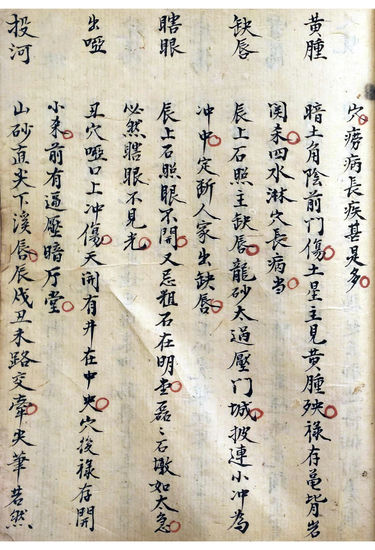 穴痨病長疾甚是多
黄腫 暗土角陰前門傷土星主見黄腫殃禄存黾背岩
関柔四水淋穴長病当
缺唇 辰上石照主缺唇龍砂太過壓门城披連小冲為
冲中定断人家出缺唇
瞎眼 辰上石照眼不開又忌粗石在明堂磊々石墩如太急
必然瞎眼不見光
出啞 丑穴啞口上冲傷天闹有井在中央穴後禄存開
小来前有逼壓暗厅堂
投河 山砂直尖下溪唇辰戌丑未路交牽尖筆若然